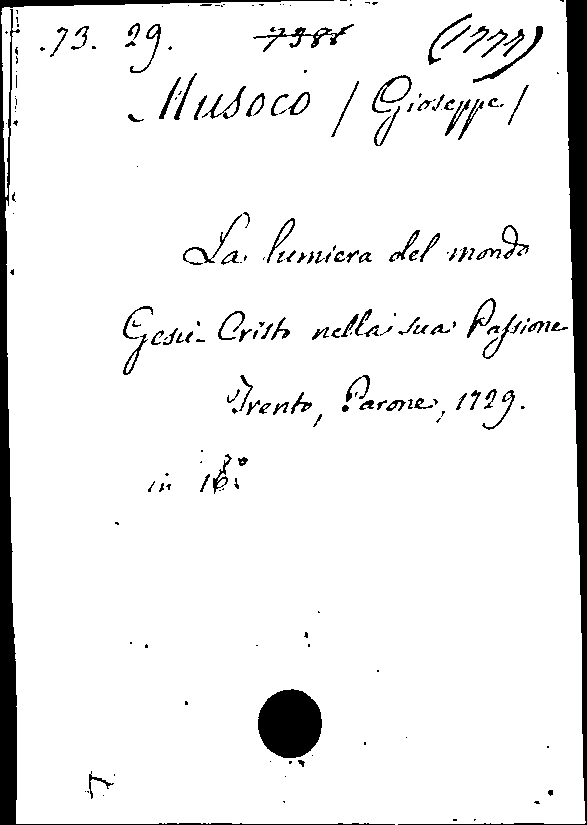 73. 29. 7388 (1777)
Musoco / Gioseppe /
La lumiera del mondo
Gesù-Cristo nella sua Passione
Trento, Parone, 1729.
in 16º.